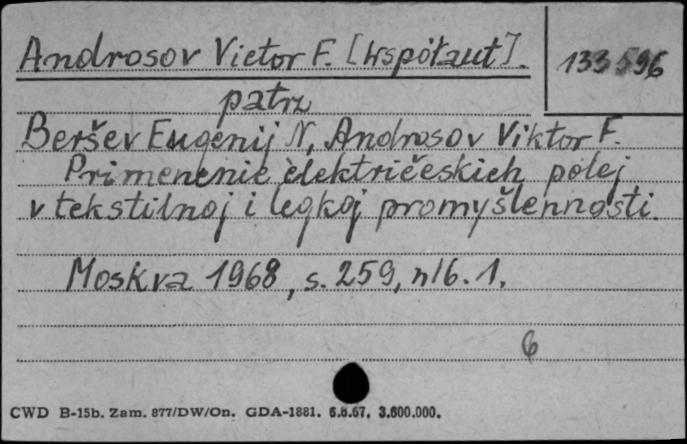 Androsov Victor F. [współaut].
133 596
patrz
Beršev Eugenij N, Androsov Viktor F.
Primenenie električeskich polej
v tekstilnoj i legkoj promyšlennosti.
Moskva 1968, s. 259, nlb. 1.
6
CWD B-15b. Zam. 877/DW/On. GDA-1881. 6.6.67. 3.600.000.